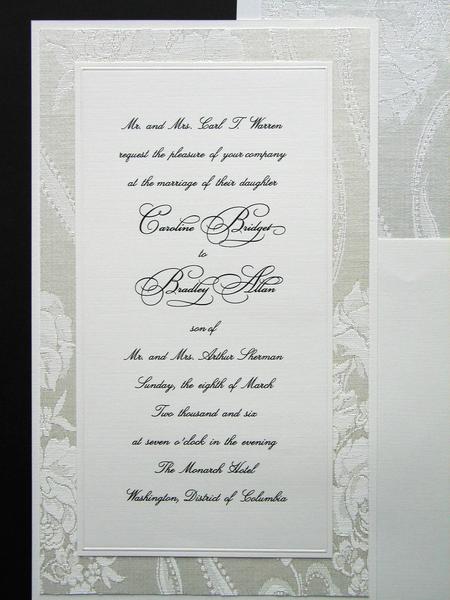 Mr. and Mrs. Carl T. Warren
request the pleasure of your company
at the marriage of their daughter
Caroline Bridget
to
Bradley Allan
son of
Mr. and Mrs. Arthur Sherman
Sunday, the eighth of March
Two thousand and six
at seven o'clock in the evening
The Monarch Hotel
Washington, District of Columbia